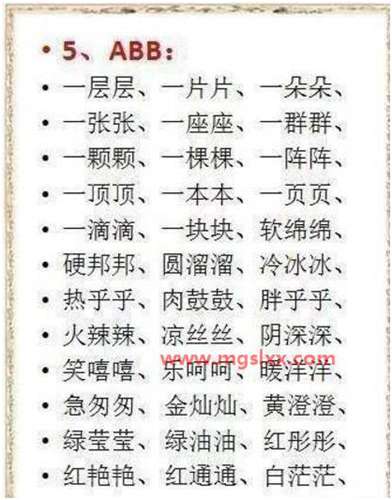 5、ABB：
一层层、一片片、一朵朵、
一张张、一座座、一群群、
一颗颗、一棵棵、一阵阵、
一顶顶、一本本、一页页、
一滴滴、一块块、软绵绵、
硬邦邦、圆溜溜、冷冰冰、
热乎乎、肉鼓鼓、胖乎乎、
火辣辣、凉丝丝、阴深深、
www.mgslxx.com
笑嘻嘻、乐呵呵、暖洋洋、
急匆匆、金灿灿、黄澄澄、
绿莹莹、绿油油、红彤彤、
红艳艳、红通通、白茫茫、